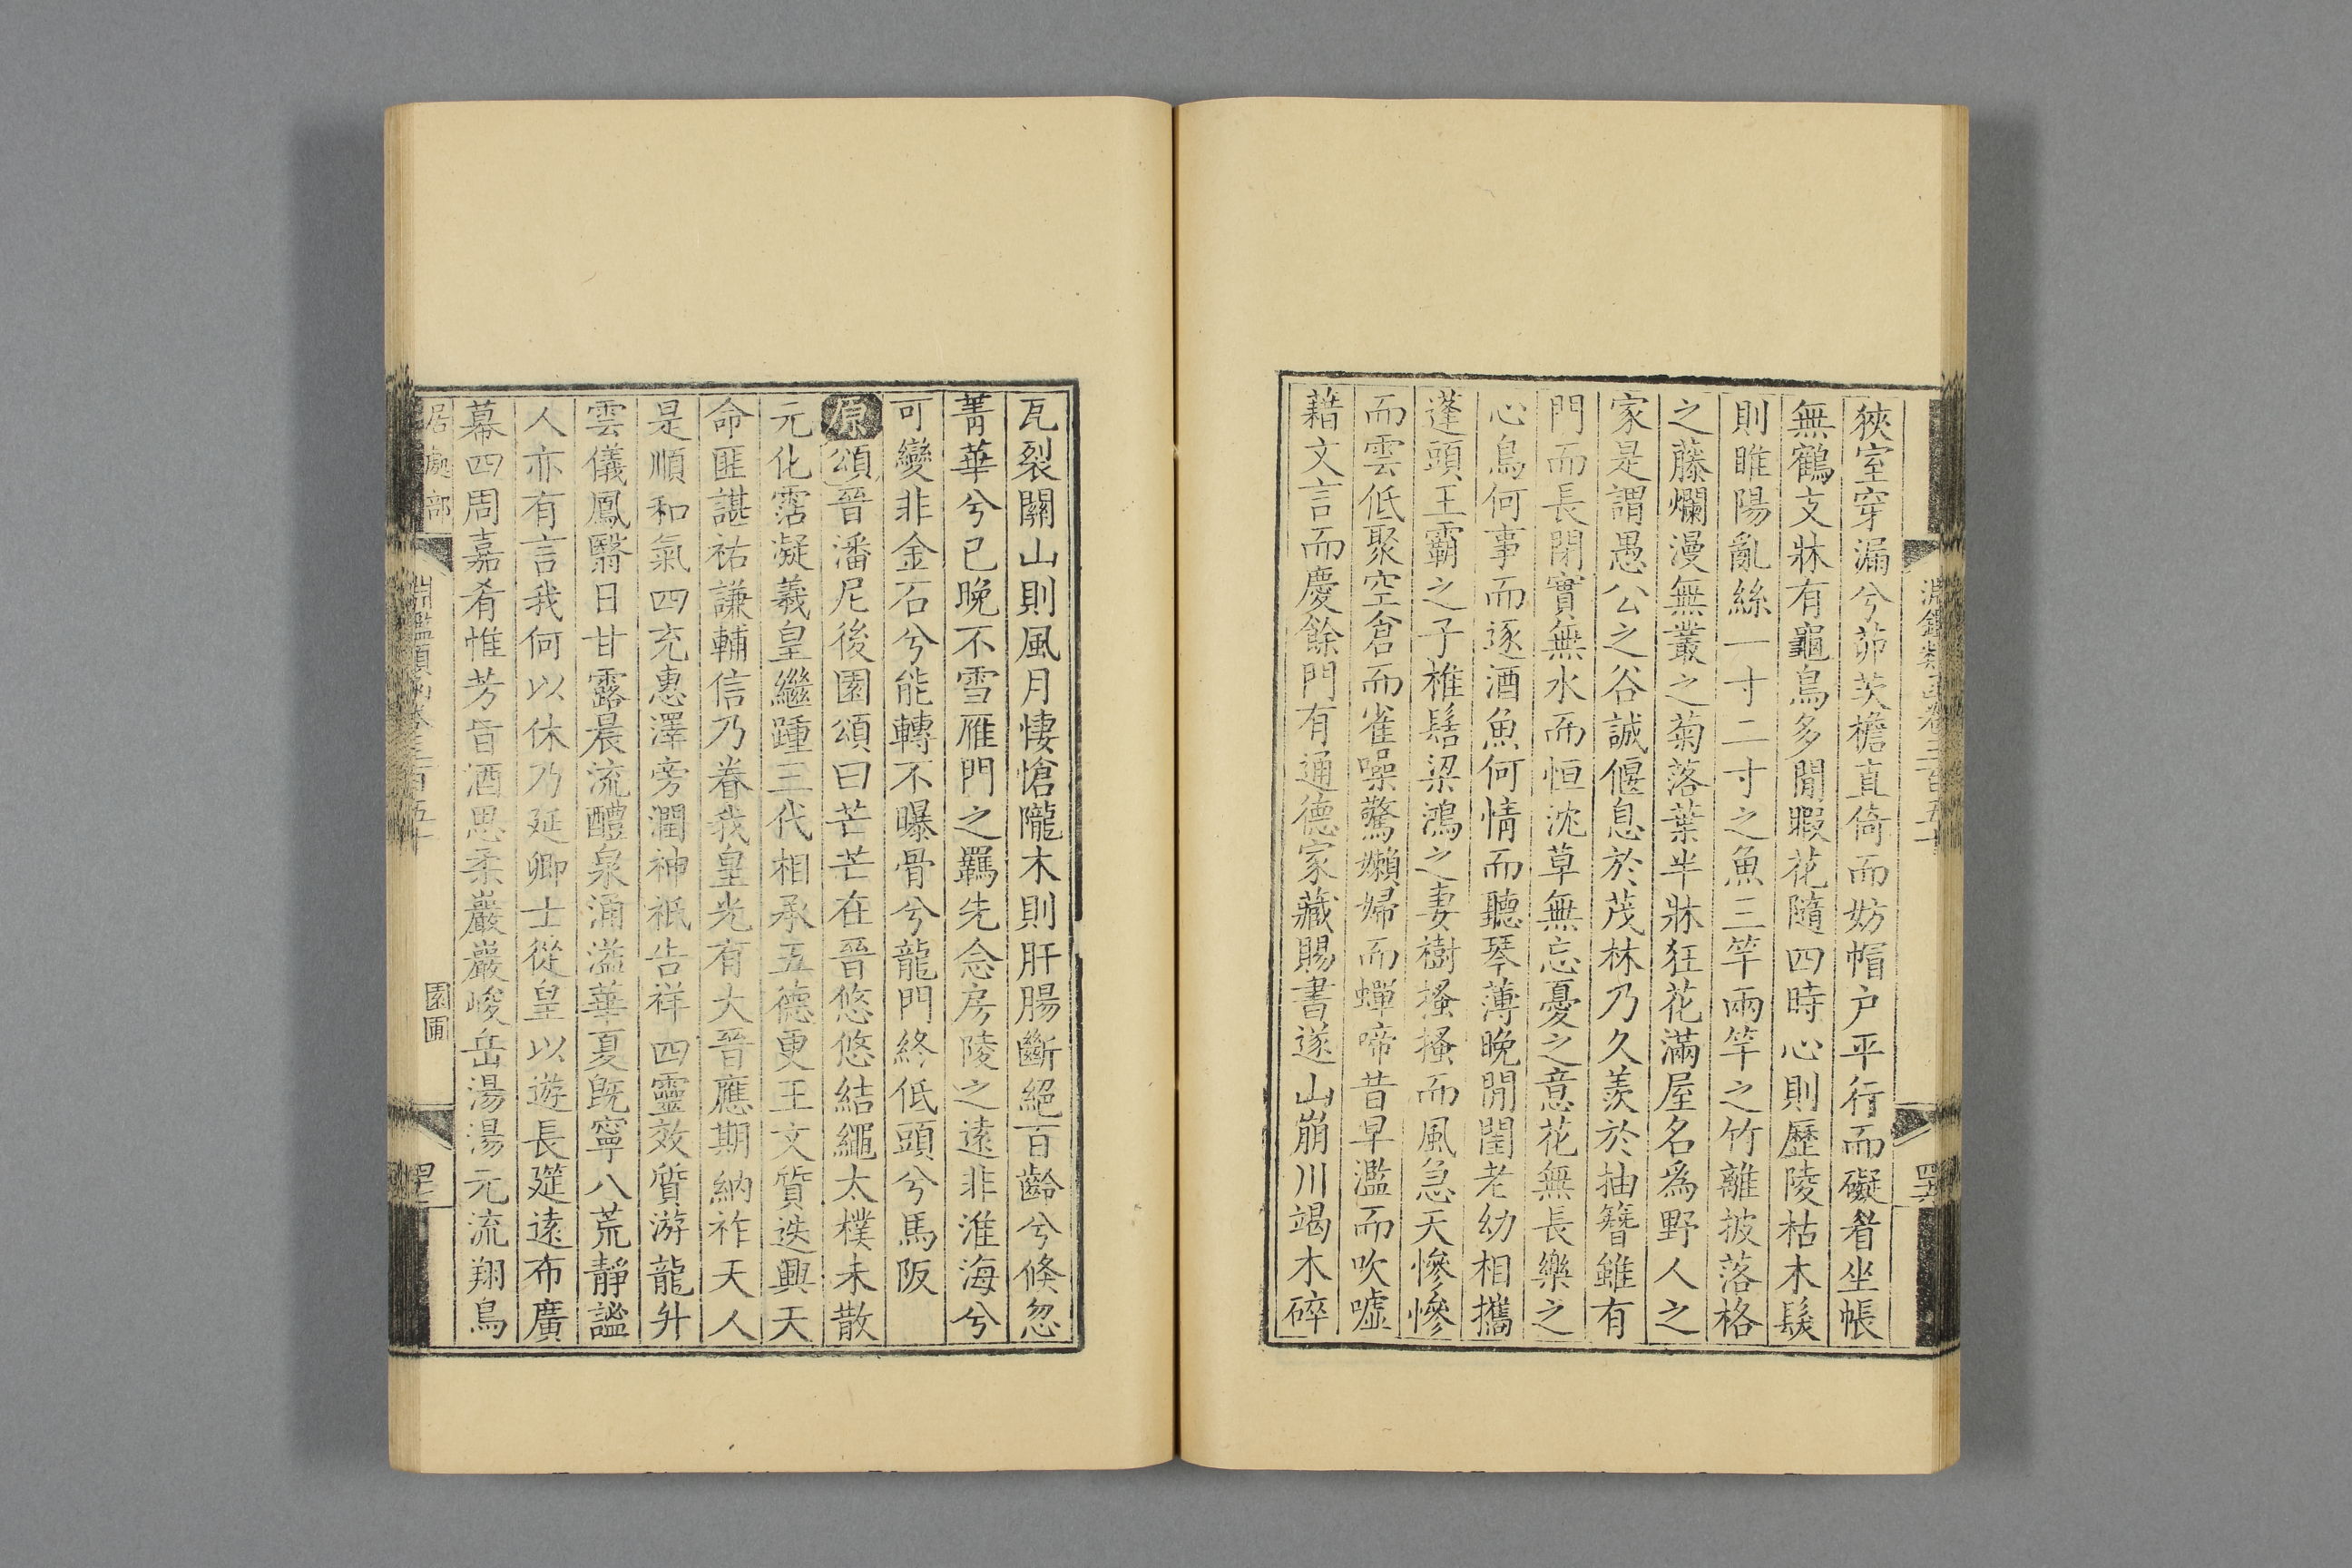 淵鑑類函卷三百五十
狹室穿漏兮茆茨檐直倚而妨帽户平行而礙眉坐帳
無鶴支牀有龜鳥多閒暇花隨四時心則歷陵枯木髮
則睢陽亂絲一寸二寸之魚三竿兩竿之竹離披落格
之藤爛漫無叢之菊落葉半牀狂花滿屋名爲野人之
家是謂愚公之谷誠偃息於茂林乃久羨於抽簪雖有
門而長閉實無水而恒沈草無忘憂之意花無長樂之
心鳥何事而逐酒魚何情而聽琴薄晚閒閨老幼相攜
蓬頭王霸之子椎髻梁鴻之妻樹搔搔而風急天慘慘
而雲低聚空倉而雀噪驚嬾婦而蟬啼昔早濫而吹噓
藉文言而慶餘門有通德家藏賜書遂山崩川竭木碎
瓦裂關山則風月悽愴隴木則肝腸斷絕百齡兮倏忽
菁華兮已晚不雪雁門之羈先念房陵之遠非淮海兮
可變非金石兮能轉不曝骨兮龍門終低頭兮馬阪
原頌晉潘尼後園頌曰芒芒在晉悠悠結繩太樸未散
元化霑凝羲皇繼踵三代相承五德更王文質迭興天
命匪諶祐謙輔信乃眷我皇光有大晉應期納祚天人
是順和氣四充惠澤旁潤神祇告祥四靈效質游龍升
雲儀鳳翳日甘露晨流醴泉涌溢華夏既寧八荒靜謐
人亦有言我何以休乃延卿士從皇以遊長筵遠布廣
幕四周嘉肴惟芳旨酒思柔巖巖峻岳湯湯元流翔鳥
居處部
淵鑑類函卷三百五十
園圃